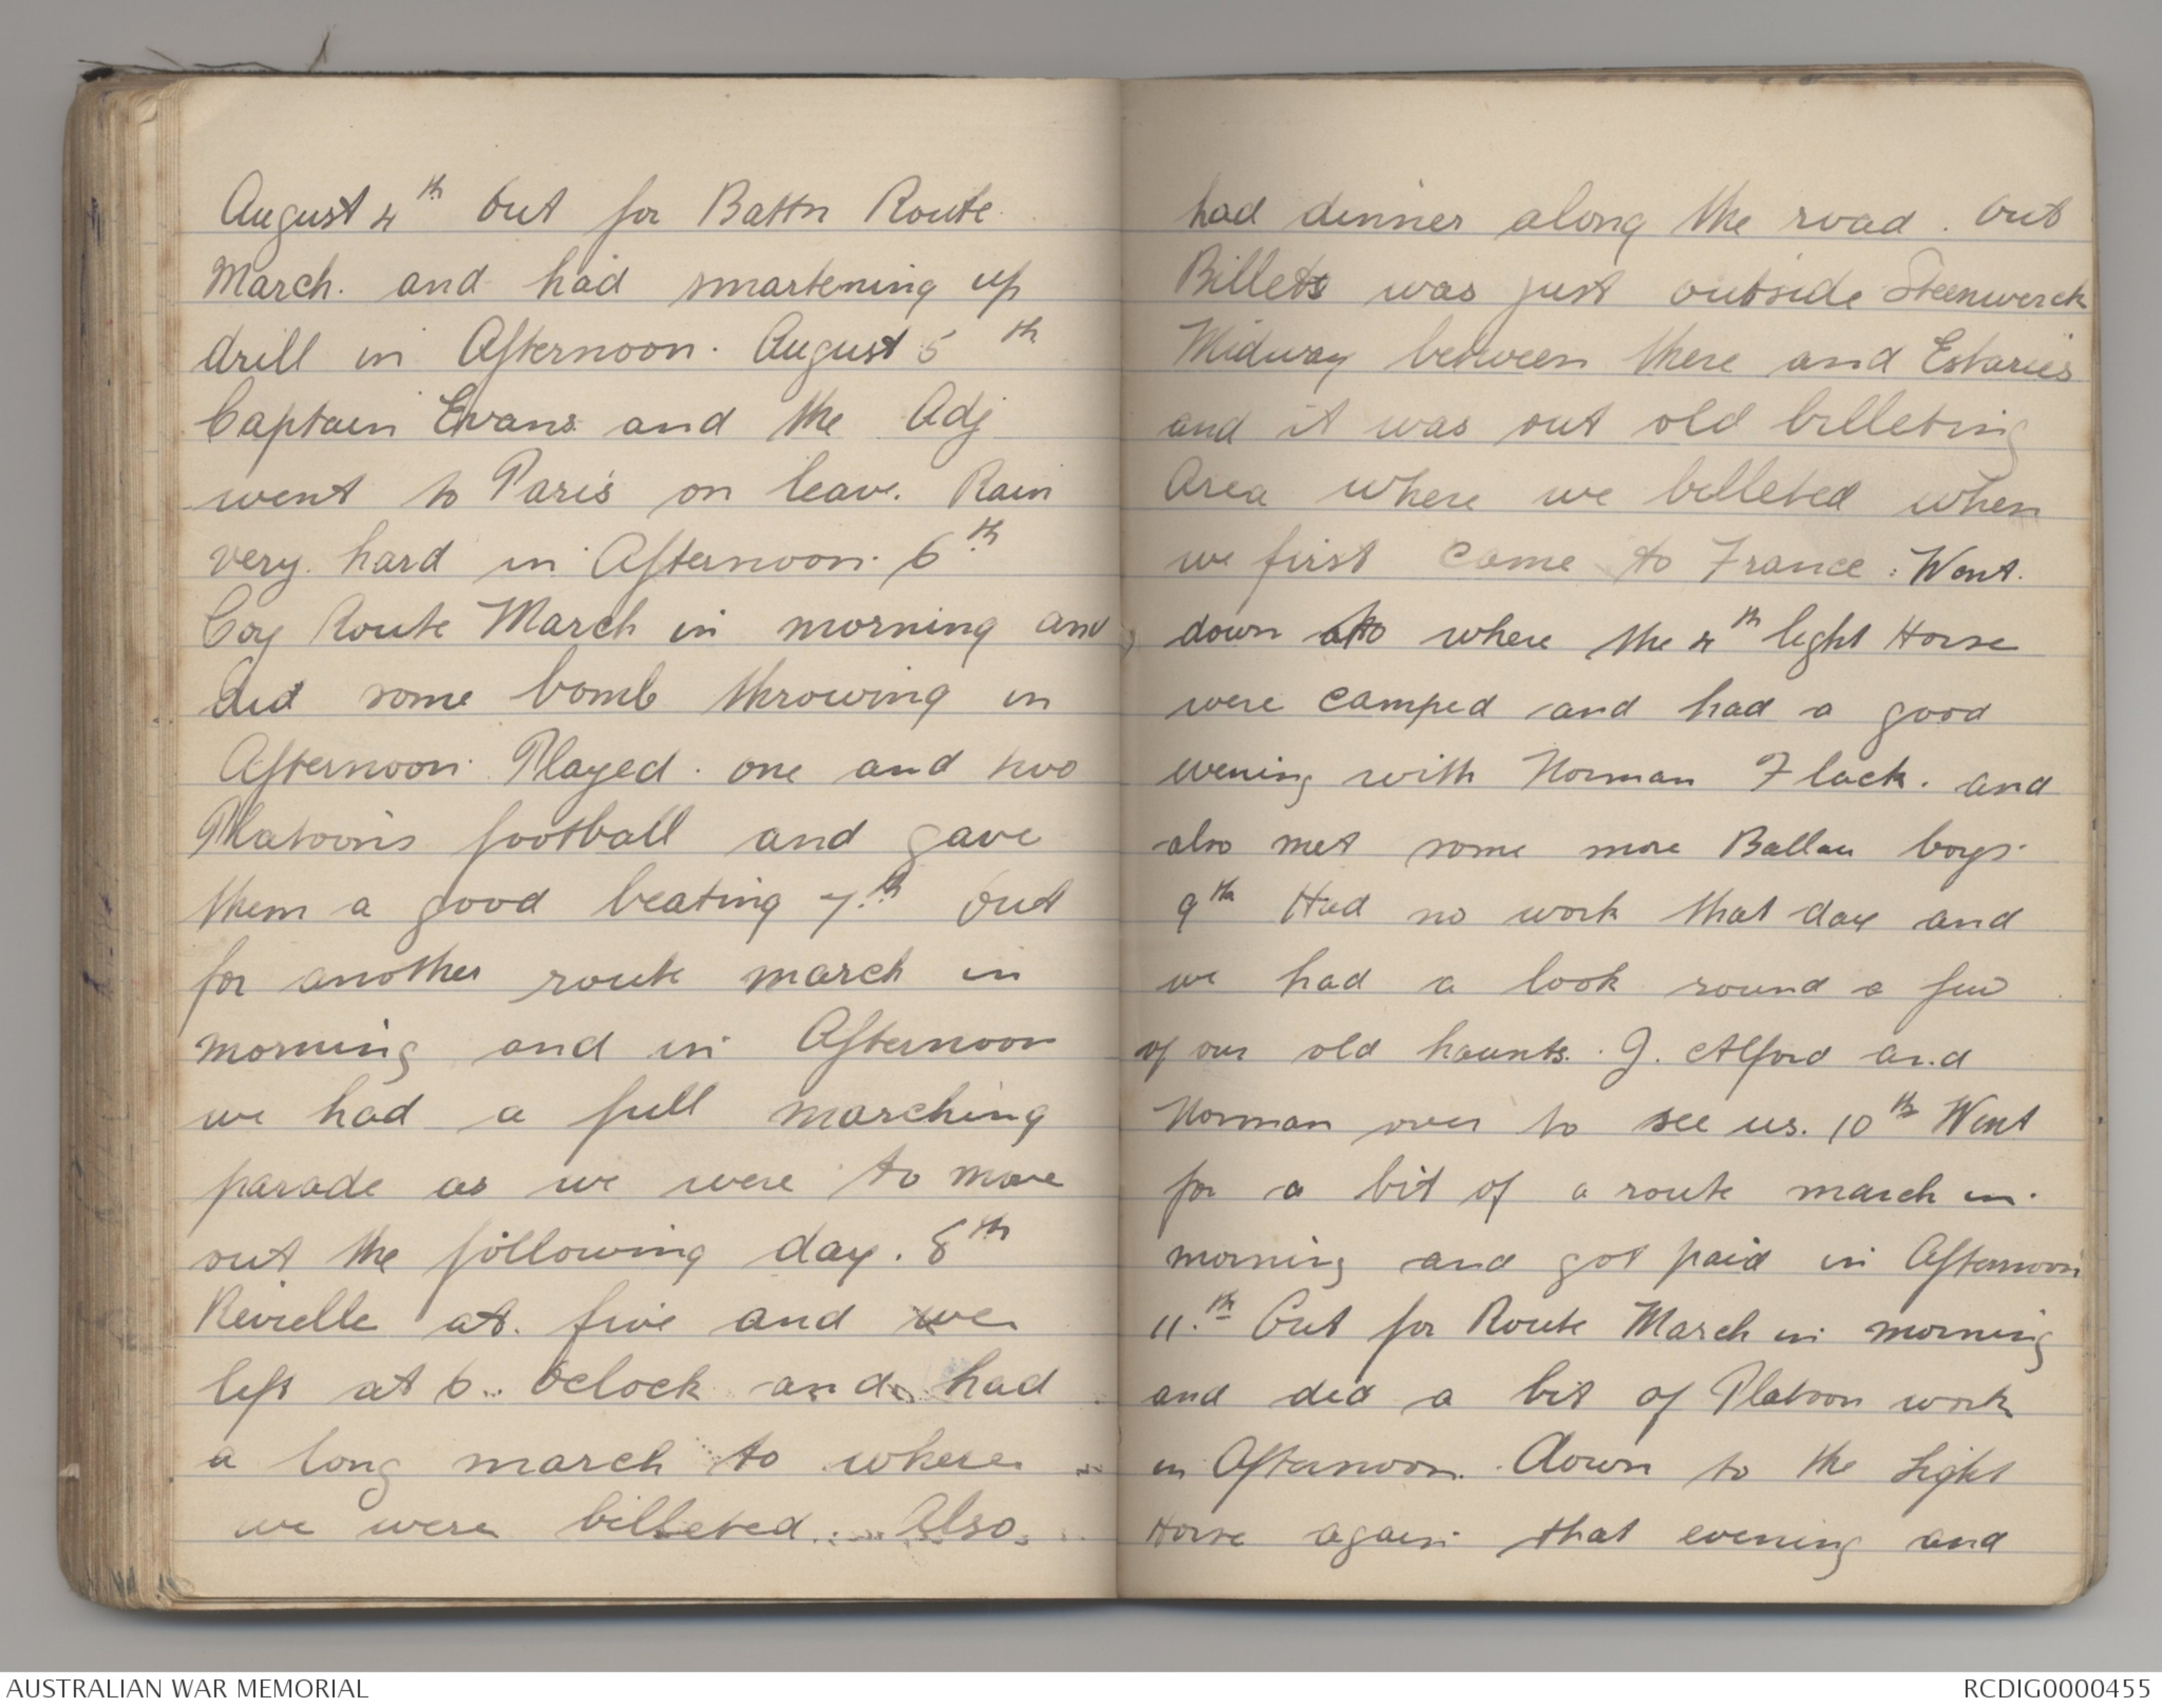 August 4th Out for Battn Route
March. and had smartening up
drill in Afternoon. August 5th
Captain Evans and the Adj
went to Paris on leave. Rain
very hard in Afternoon. 6th
Coy Route March in morning and
did some bomb throwing in
Afternoon. Played one and two
Platoons football and gave
them a good beating 7th Out
for another route march in
morning and in Afternoon
we had a full marching
parade as we were to move
out the following day. 8th
Revielle at five and we
left at 6. Oclock and had
a long march to where
we were billeted. Also
had dinner along the road. Out
Billets was just outside Steenwerck
Midway between there and Estaries
and it was out old billeting
Area where we billeted when
we first came to France. Went
down to where the 4th light Horse
were camped and had a good
evening with Norman Flack. and
also met some more Ballan boys.
9th Had no work that day and
we had a look round a few
of our old haunts. J. Alford and
Norman over to see us. 10th Went
for a bit of a route march in
morning and got paid in Afternoon
11.th Out for Route March in morning
and did a bit of Platoon work
in Afternoon. Down to the Light
Horse again that evening and
AUSTRALIAN WAR MEMORIAL
RCDIG0000455